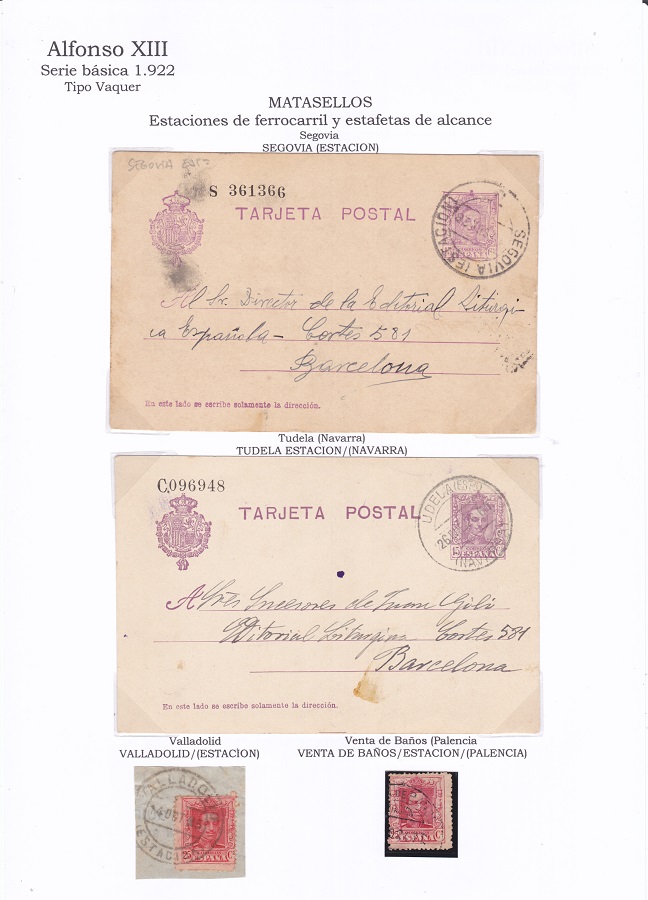 Alfonso XIII
Serie básica 1.922
Tipo Vaquer
MATASELLOS
Estaciones de ferrocarril y estafetas de alcance
Segovia
SEGOVIA (ESTACION)
SEGOVIA EST
S 361366
TARJETA POSTAL
SEGOVIA (ESTACION)
Al Sr. Director de la Editorial Litúrgi-
ca Española - Cortes 581
Barcelona
En este lado se escribe solamente la dirección.
Tudela (Navarra)
TUDELA ESTACION/(NAVARRA)
C,096948
TARJETA POSTAL
UDELA (EST
26
(NAV
15
ESPAÑA
A Sres Sucesores de Juan Gili
Editorial Liturgica Cortes 581
Barcelona
En este lado se escribe solamente la dirección.
Valladolid
VALLADOLID/(ESTACÌON)
Venta de Baños (Palencia
VENTA DE BAÑOS/ESTACION/(PALENCIA)
VALLADO
(ESTACI
25 Cs
ESPAÑA
ESPAÑA